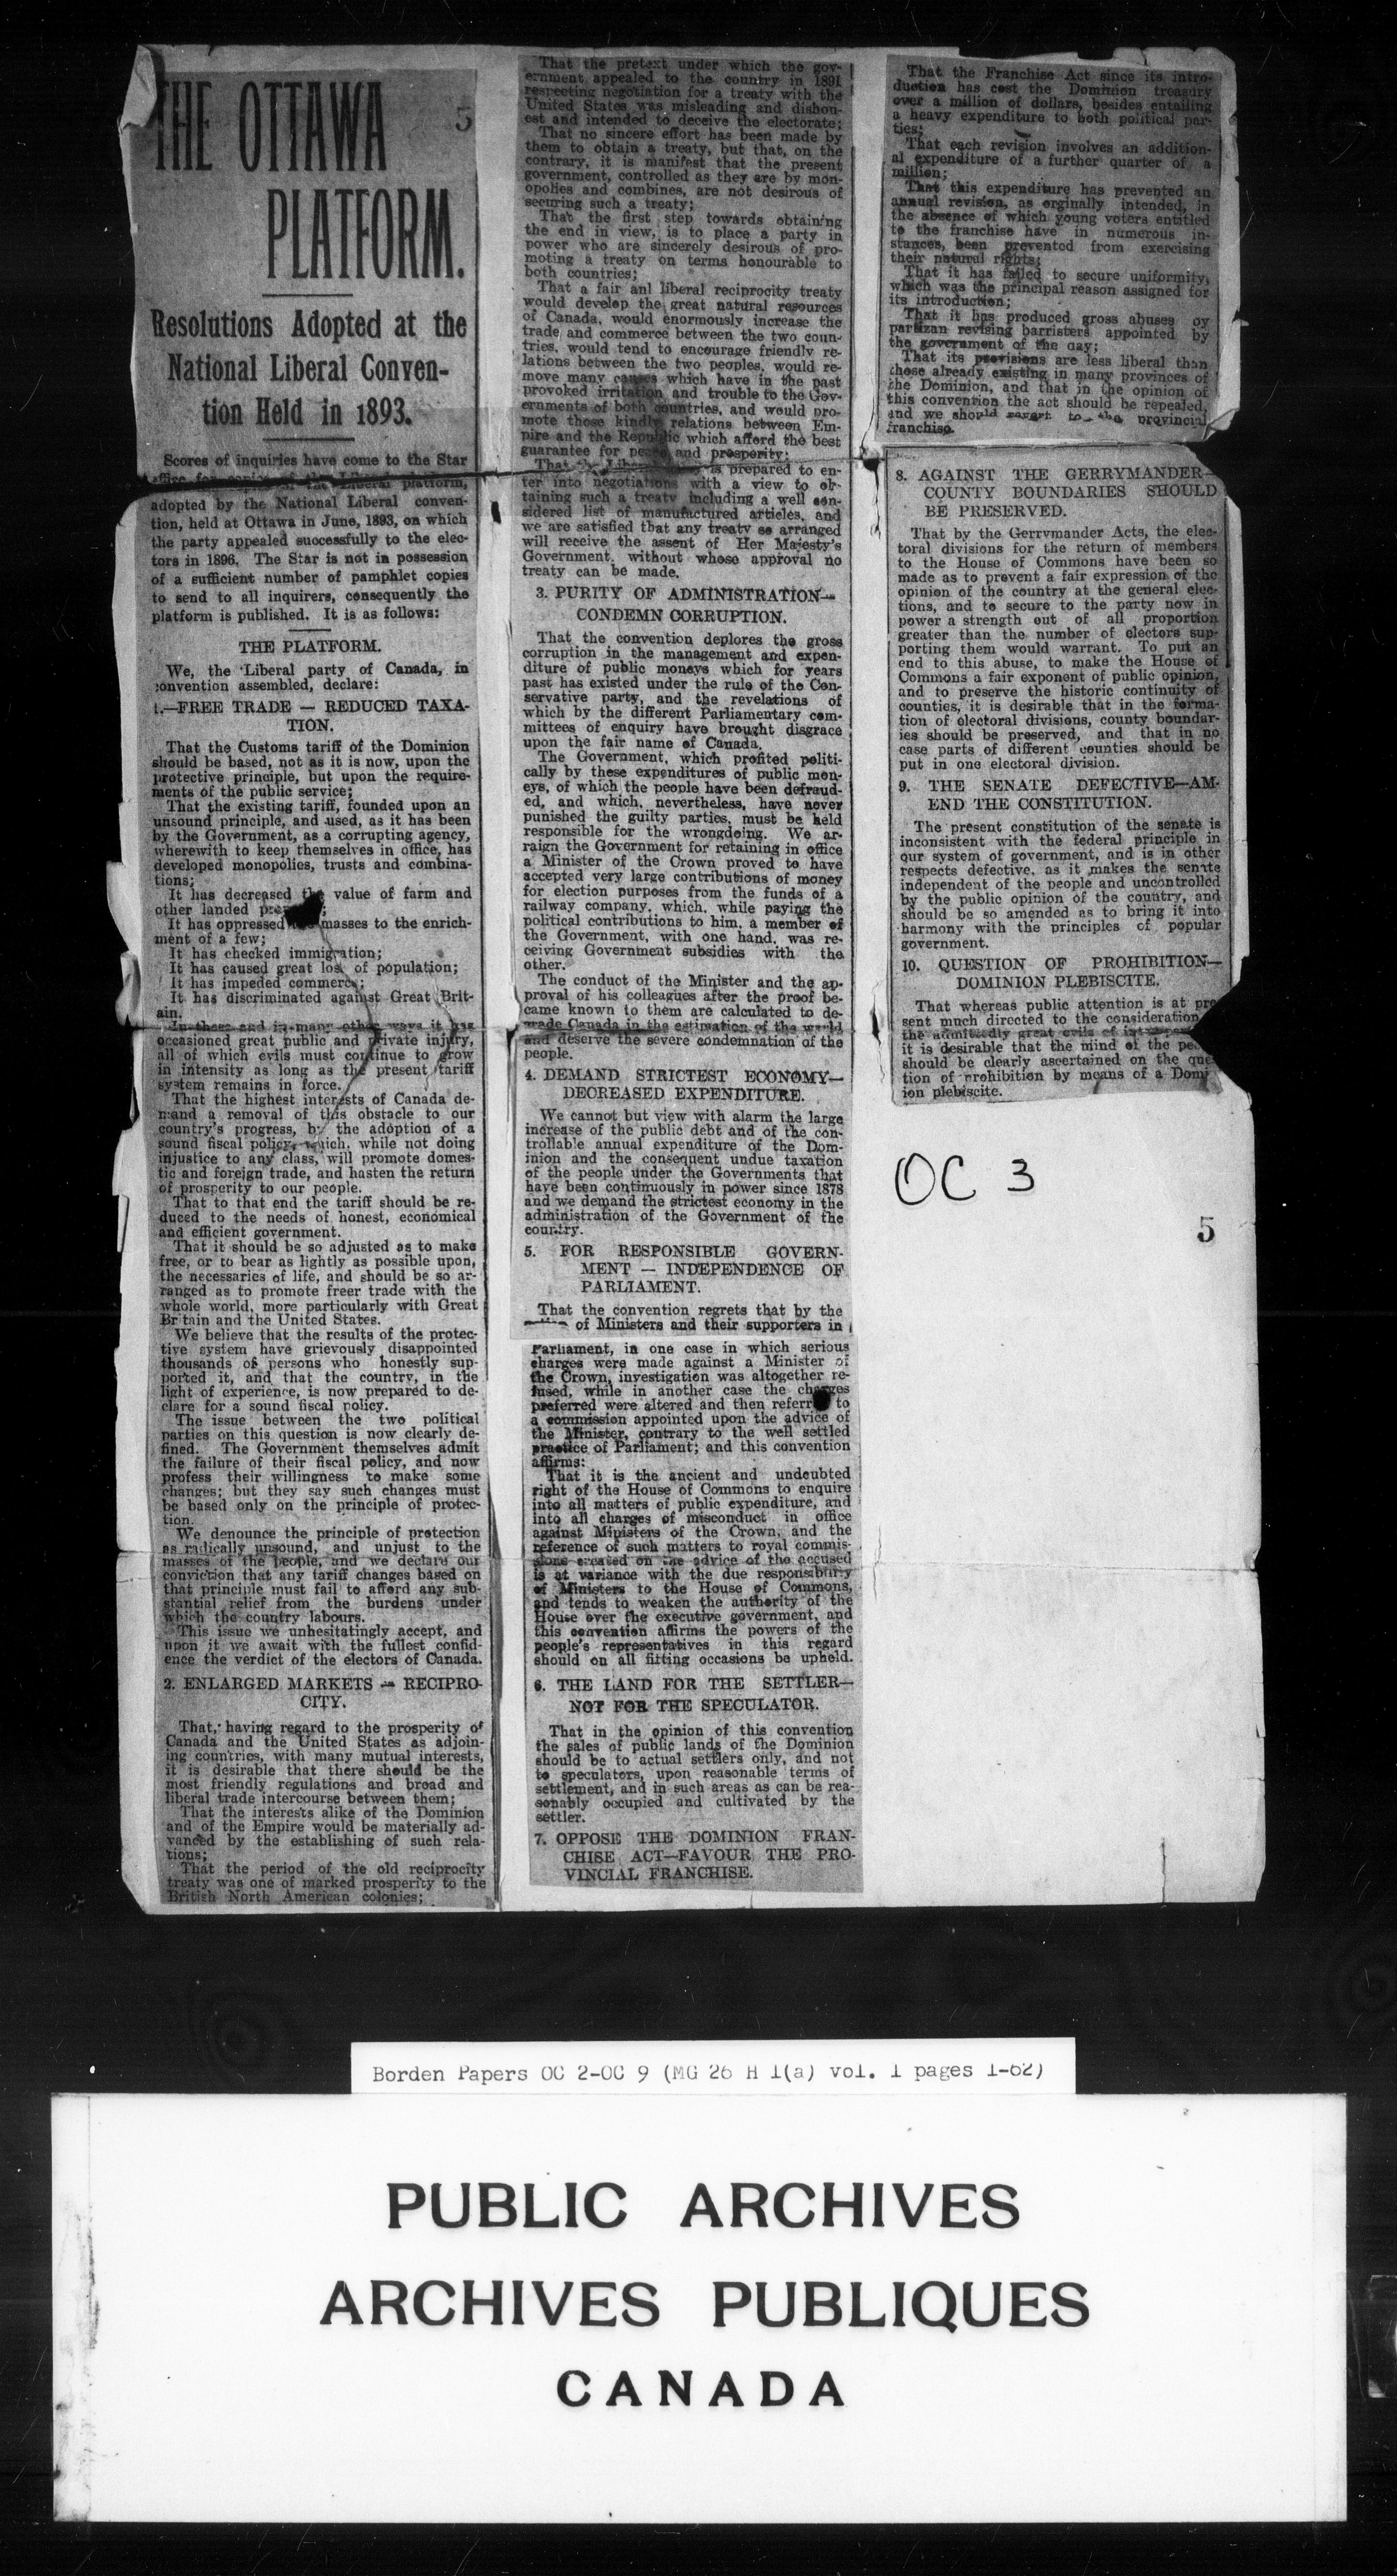 THE OTTAWA
PLATFORM.
5
Resolutions Adopted at the
National Liberal Conven-
tion Held in 1893.
Scores of inquiries have come to the Star
platform,
adopted by the National Liberal conven-
tion, held at Ottawa in June, 1893, on which
the party appealed successfully to the elec-
tors in 1896. The Star is not in possession
of a sufficient number of pamphlet copies
to send to all inquirers, consequently the
platform is published. It is as follows:
THE PLATFORM.
We, the Liberal party of Canada, in
convention assembled, declare:
1.—FREE TRADE — REDUCED TAXA-
TION.
That the Customs tariff of the Dominion
should be based, not as it is now, upon the
protective principle, but upon the require-
ments of the public service;
That the existing tariff, founded upon an
unsound principle, and used, as it has been
by the Government, as a corrupting agency,
wherewith to keep themselves in office, has
developed monopolies, trusts and combina-
tions;
It has decreased the value of farm and
other landed
It has oppressed masses to the enrich-
ment of a few;
It has checked immigration;
It has caused great loss of population;
It has impeded commerce;
It has discriminated against Great Brit-
ain.
In these and in many other ways it has
occasioned great public and private injury,
all of which evils must continue to grow
in intensity as long as the present tariff
system remains in force.
That the highest interests of Canada de-
mand a removal of this obstacle to our
country's progress, by the adoption of a
sound fiscal policy, which, while not doing
injustice to any class, will promote domes-
tic and foreign trade, and hasten the return
of prosperity to our people.
That to that end the tariff should be re-
duced to the needs of honest, economical
and efficient government.
That it should be so adjusted as to make
free, or to bear as lightly as possible upon,
the necessaries of life, and should be so ar-
ranged as to promote freer trade with the
whole world, more particularly with Great
Britain and the United States.
We believe that the results of the protec-
tive system have grievously disappointed
thousands of persons who honestly sup-
ported it, and that the country, in the
light of experience, is now prepared to de-
clare for a sound fiscal policy.
The issue between the two political
parties on this question is now clearly de-
fined. The Government themselves admit
the failure of their fiscal policy, and now
profess their willingness to make some
changes; but they say such changes must
be based only on the principle of protec-
tion.
We denounce the principle of protection
as radically unsound, and unjust to the
masses of the people, and we declare our
conviction that any tariff changes based on
that principle must fail to afford any sub-
stantial relief from the burdens under
which the country labours.
This issue we unhesitatingly accept, and
upon it we await with the fullest confid-
ence the verdict of the electors of Canada.
2. ENLARGED MARKETS — RECIPRO-
CITY.
That, having regard to the prosperity of
Canada and the United States as adjoin-
ing countries, with many mutual interests,
it is desirable that there should be the
most friendly regulations and broad and
liberal trade intercourse between them;
That the interests alike of the Dominion
and of the Empire would be materially ad-
vanced by the establishing of such rela-
tions;
That the period of the old reciprocity
treaty was one of marked prosperity to the
British North American colonies;
That the pretext under which the gov-
ernment appealed to the country in 1891
respecting negotiation for a treaty with the
United States was misleading and dishon-
est and intended to deceive the electorate;
That no sincere effort has been made by
them to obtain a treaty, but that, on the
contrary, it is manifest that the present
government, controlled as they are by mon-
opolies and combines, are not desirous of
securing such a treaty;
That the first step towards obtaining
the end in view, is to place a party in
power who are sincerely desirous of pro-
moting a treaty on terms honourable to
both countries;
That a fair anl liberal reciprocity treaty
would develop the great natural resources
of Canada, would enormously increase the
trade and commerce between the two coun-
tries, would tend to encourage friendly re-
lations between the two peoples, would re-
move many causes which have in the past
provoked irritation and trouble to the Gov-
ernments of both countries, and would pro-
mote those kindly relations between Em-
pire and the Republic which afford the best
guarantee for peace and prosperity;
That the Liberal is prepared to en-
ter into negotiations with a view to ob-
taining such a treaty including a well con-
sidered list of manufactured articles, and
we are satisfied that any treaty so arranged
will receive the assent of Her Majesty's
Government, without whose approval no
treaty can be made.
3. PURITY OF ADMINISTRATION—
CONDEMN CORRUPTION.
That the convention deplores the gross
corruption in the management and expen-
diture of public moneys which for years
past has existed under the rule of the Con-
servative party, and the revelations of
which by the different Parliamentary com-
mittees of enquiry have brought disgrace
upon the fair name of Canada.
The Government, which profited politi-
cally by these expenditures of public mon-
eys, of which the people have been defraud-
ed, and which, nevertheless, have never
punished the guilty parties, must be held
responsible for the wrongdoing. We ar-
raign the Government for retaining in office
a Minister of the Crown proved to have
accepted very large contributions of money
for election purposes from the funds of a
railway company, which, while paying the
political contributions to him, a member of
the Government, with one hand, was re-
ceiving Government subsidies with the
other.
The conduct of the Minister and the ap-
proval of his colleagues after the proof be-
came known to them are calculated to de-
grade Canada in the estimation of the world
and deserve the severe condemnation of the
people.
4. DEMAND STRICTEST ECONOMY—
DECREASED EXPENDITURE.
We cannot but view with alarm the large
increase of the public debt and of the con-
trollable annual expenditure of the Dom-
inion and the consequent undue taxation
of the people under the Governments that
have been continuously in power since 1878
and we demand the strictest economy in the
administration of the Government of the
country.
5. FOR RESPONSIBLE GOVERN-
MENT — INDEPENDENCE OF
PARLIAMENT.
That the convention regrets that by the
of Ministers and their supporters in
Parliament, in one case in which serious
charges were made against a Minister of
the Crown, investigation was altogether re-
fused, while in another case the charges
preferred were altered and then referred to
a commission appointed upon the advice of
the Minister, contrary to the well settled
practice of Parliament; and this convention
affirms:
That it is the ancient and undoubted
right of the House of Commons to enquire
into all matters of public expenditure, and
into all charges of misconduct in office
against Ministers of the Crown, and the
reference of such matters to royal commis-
sions created on the advice of the accused
is at variance with the due responsibility
of Ministers to the House of Commons,
and tends to weaken the authority of the
House over the executive government, and
this convention affirms the powers of the
people's representatives in this regard
should on all fitting occasions be upheld.
6. THE LAND FOR THE SETTLER—
NOT FOR THE SPECULATOR.
That in the opinion of this convention
the sales of public lands of the Dominion
should be to actual settlers only, and not
to speculators, upon reasonable terms of
settlement, and in such areas as can be rea-
sonably occupied and cultivated by the
settler.
7. OPPOSE THE DOMINION FRAN-
CHISE ACT—FAVOUR THE PRO-
VINCIAL FRANCHISE.
That the Franchise Act since its intro-
duction has cost the Dominion treasury
over a million of dollars, besides entailing
a heavy expenditure to both political par-
ties;
That each revision involves an addition-
al expenditure of a further quarter of a
million;
That this expenditure has prevented an
annual revision, as orginally intended, in
the absence of which young voters entitled
to the franchise have in numerous in-
stances, been prevented from exercising
their natural rights;
That it has failed to secure uniformity,
which was the principal reason assigned for
its introduction;
That it has produced gross abuses by
partizan revising barristers appointed by
the government of the day;
That its provisions are less liberal than
those already existing in many provinces of
the Dominion, and that in the opinion of
this convention the act should be repealed,
and we should revert to the provincial
franchise.
8. AGAINST THE GERRYMANDER—
COUNTY BOUNDARIES SHOULD
BE PRESERVED.
That by the Gerrymander Acts, the elec-
toral divisions for the return of members
to the House of Commons have been so
made as to prevent a fair expression of the
opinion of the country at the general elec-
tions, and to secure to the party now in
power a strength out of all proportion
greater than the number of electors sup-
porting them would warrant. To put an
end to this abuse, to make the House of
Commons a fair exponent of public opinion,
and to preserve the historic continuity of
counties, it is desirable that in the forma-
tion of electoral divisions, county boundar-
ies should be preserved, and that in no
case parts of different counties should be
put in one electoral division.
9. THE SENATE DEFECTIVE—AM-
END THE CONSTITUTION.
The present constitution of the senate is
inconsistent with the federal principle in
our system of government, and is in other
respects defective, as it makes the senate
independent of the people and uncontrolled
by the public opinion of the country, and
should be so amended as to bring it into
harmony with the principles of popular
government.
10. QUESTION OF PROHIBITION—
DOMINION PLEBISCITE.
That whereas public attention is at pre
sent much directed to the consideration
the admittedly great evils of
it is desirable that the mind of the
should be clearly ascertained on the que
tion of prohibition by means of a Domi
ion plebiscite.
OC 3
5
Borden Papers OC 2-OC 9 (MG 26 H 1(a) vol. 1 pages 1-62)
PUBLIC ARCHIVES
ARCHIVES PUBLIQUES
CANADA